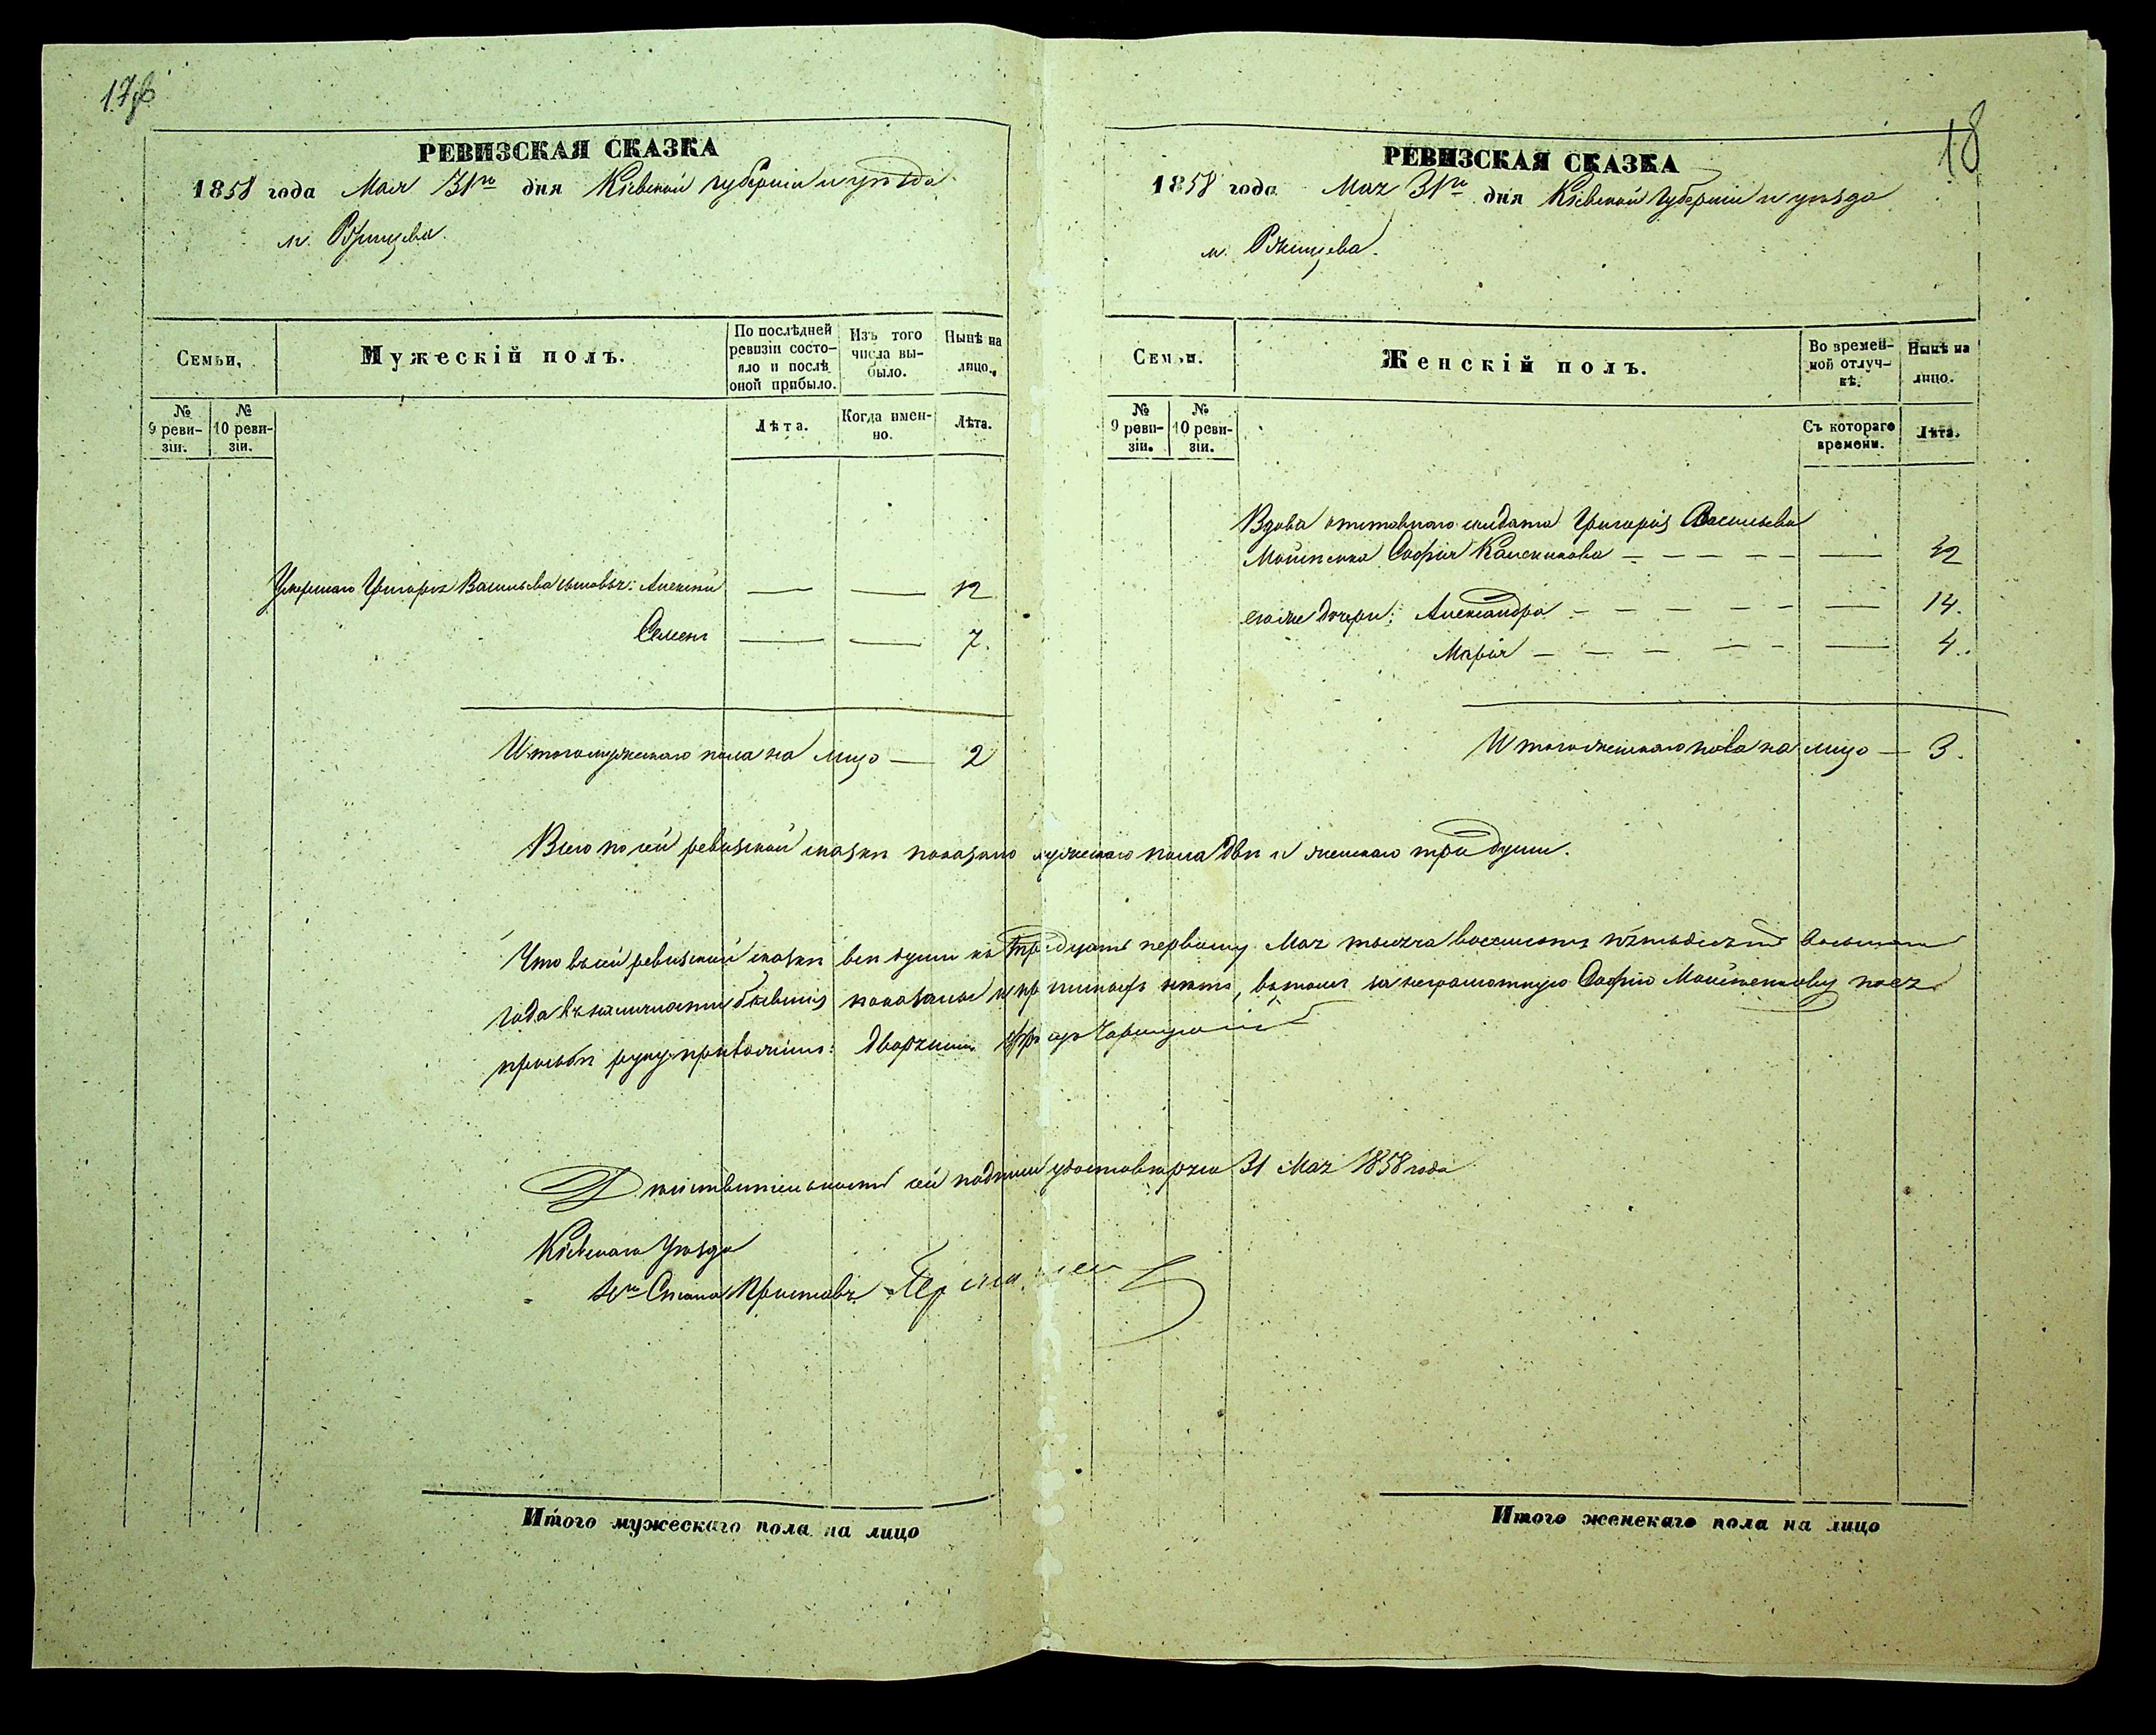 18
РЕВИЗСКАЯ СКАЗКА
1858 года Мая 31го дня Кіевской губерніи и уѣзда
м. Ржищева.
Семьи,
Мужескій полъ.
По послѣдней ревизіи состо-
яло и послѣ
оной прибыло.
Изъ того
числа вы-
было.
Нынѣ на
лицо.
№
9 реви-
зіи.
№
10 реви-
зіи.
Лѣта.
Когда имен-
но.
Лѣта.
Умершаго Григорія Васильева сыновья: Алексѣй — — 12
Семенъ — — 7.
Итого мужескаго пола на лицо — 2
РЕВИЗСКАЯ СКАЗКА
1858 года Мая 31го дня Кіевской Губерніи и уѣзда
м. Ржищева.
Семьи.
Женскій полъ.
Во времен-
ной отлуч-
кѣ.
Нынѣ на
лицо.
№
9 реви-
зіи.
№
10 реви-
зіи.
Съ котораго
времени.
Лѣта.
Вдова отставнаго солдата Григорія Васильева
Софія — — — — — — 42
его же дочери: Александра — — — — — — 14.
Марія — — — — — — 4.
Итого женскаго пола на лицо — 3.
Всего по сей ревизской сказки показано мужескаго пола двѣ и женскаго три души.
Что въ сей ревизской сказки всѣ души къ тридцать первому Мая тысяча восемсотъ пятьдесятъ восьмаго
года въ наличности бывшія показаны и нѣтъ, въ томъ за неграмотную Софію по ея
просьбѣ руку приложилъ: Дворянинъ
Дѣйствительность сей подписи удостовѣряю 31 Мая 1858 года
Кіевскаго Уѣзда
Стана Приставъ
Итого мужескаго пола на лицо
Итого женскаго пола на лицо